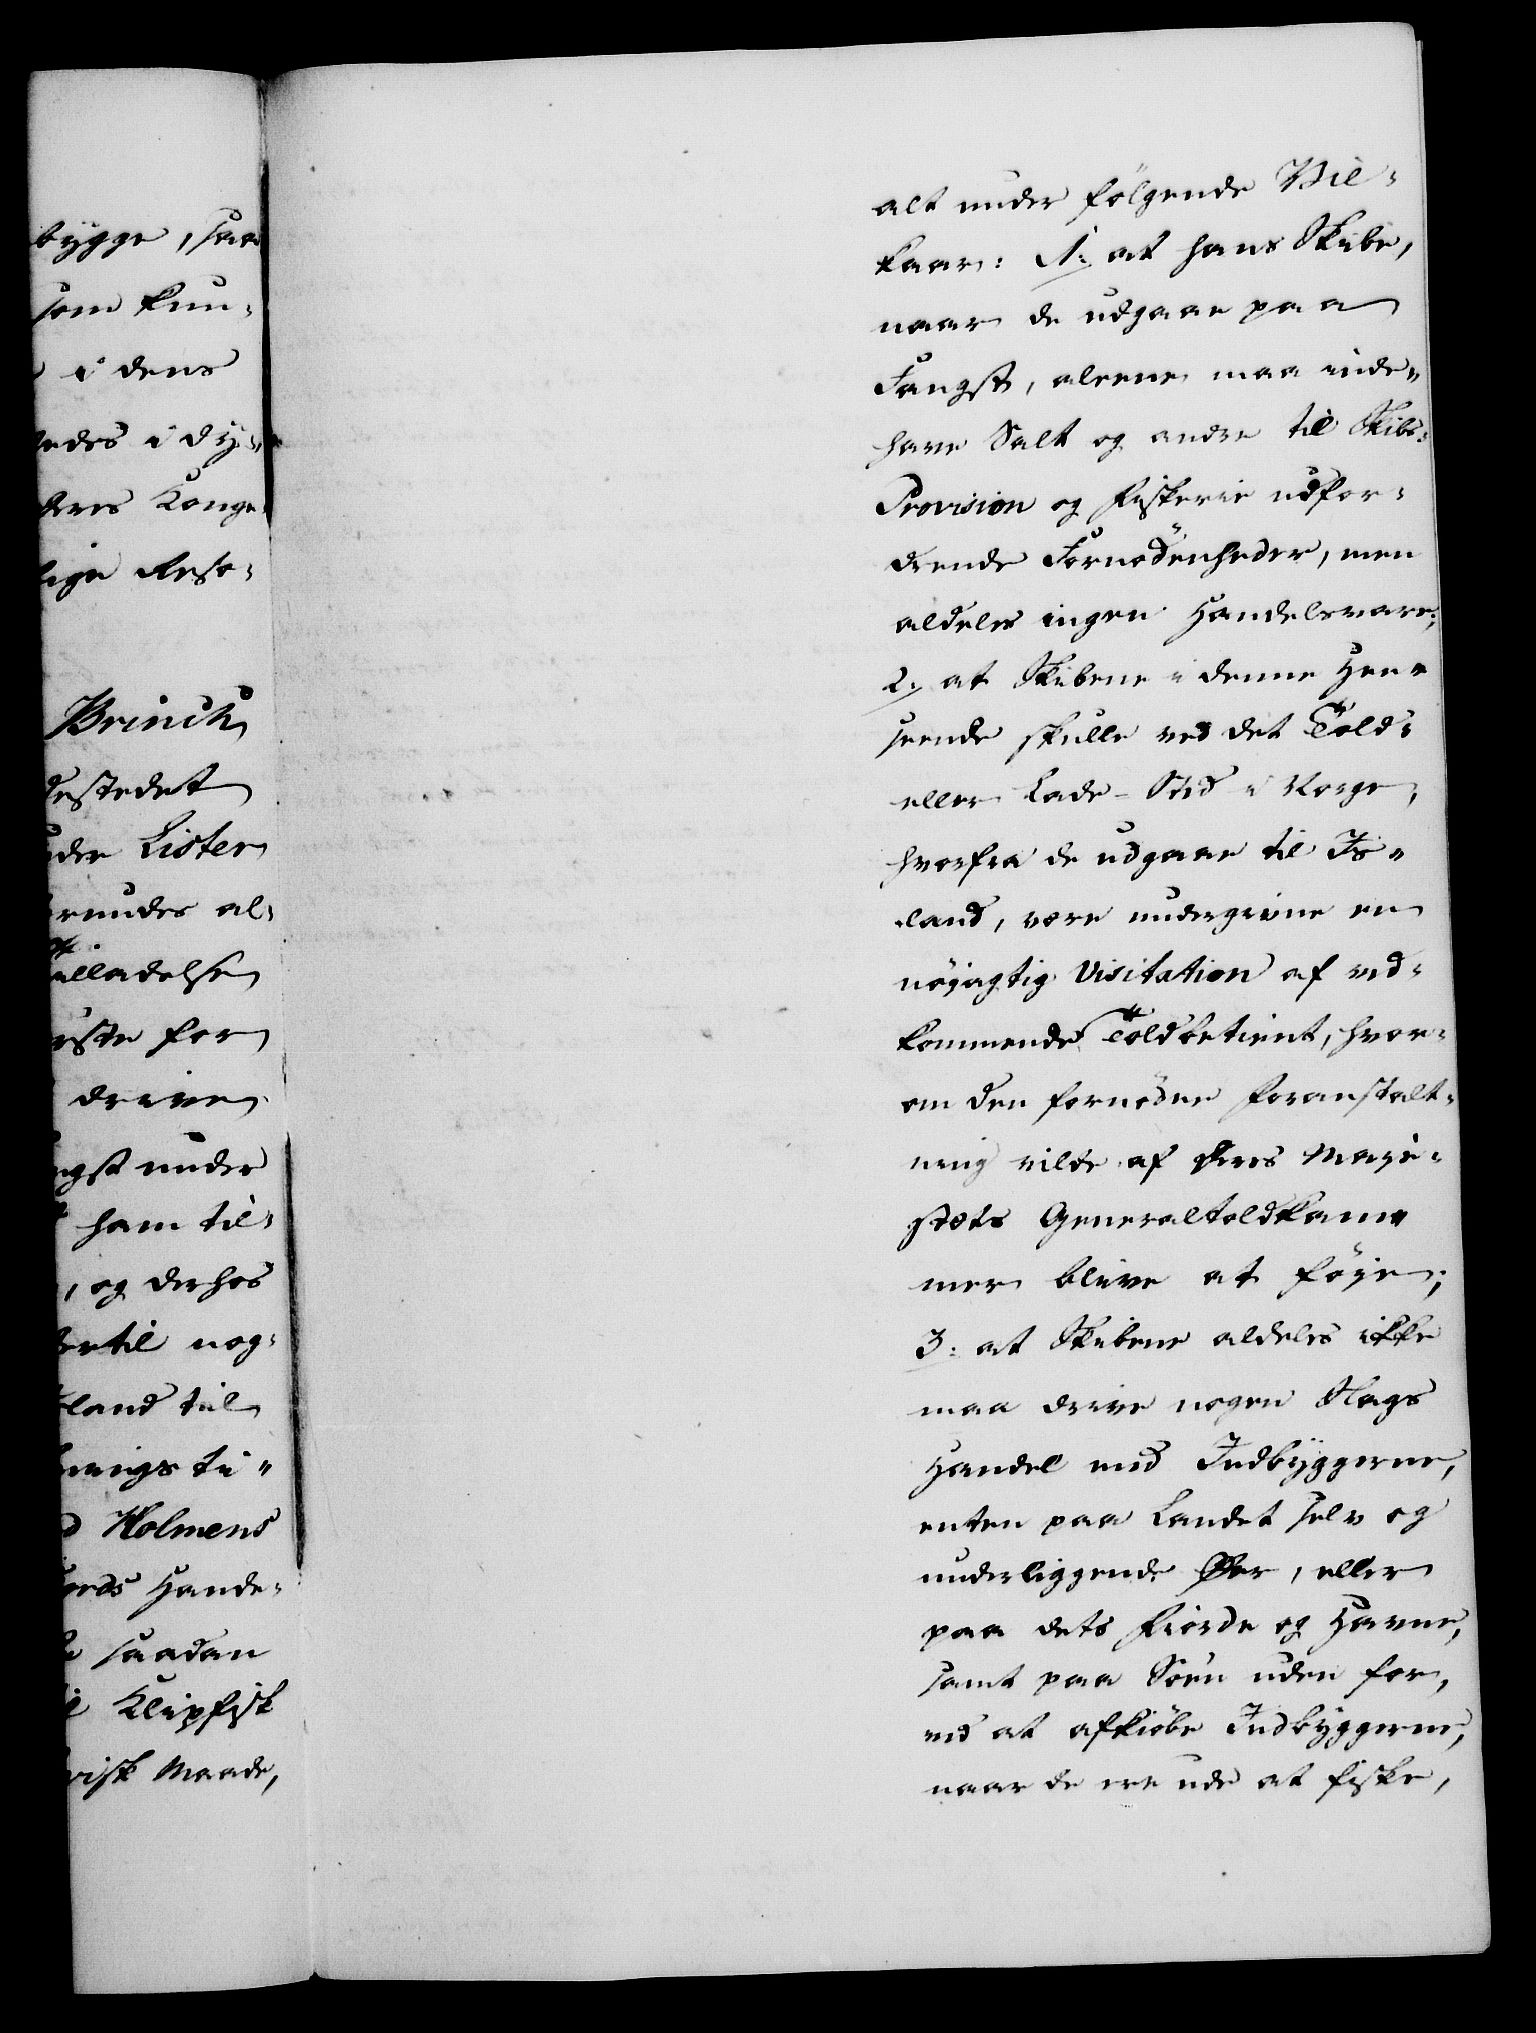 bygge, saa
som kun-
i dens
ledes i dy-
deres Konge-
lige Reso-
Brinch
destedet
nder Lister
grundes al-
Tilladelse
ste for
drive
ngst under
ham til-
, og derhos
dertil nog-
sland til
nings ti-
d Holmens
fjords Hande-
saadan
Klipfisk
risk Maade,
alt under følgende Vil-
kaar: 1: at hans Skibe,
naar de udgaae paa
Fangst, alene maa inde-
have Salt og andre til Skibs-
Provision og Fiskerie udfor-
drende Fornødenheder, men
aldeles ingen Handelsvare;
2, at Skibene i denne Hen-
seende skulle ved det Told-
eller Lade-Sted i Norge,
hvorfra de udgaae til Is-
land, være undergivne en
nøjagtig Visitation af ved-
kommende Toldbetient, hvor-
om den fornødne Foranstalt-
ning vilde af Deres Maje-
stæts Generaltoldkam-
mer blive at føje;
3: at Skibene aldeles ikke
maa drive nogen Slags
Handel med Indbyggerne,
enten paa Landet selv og
underliggende Øer, eller
paa dets Fiorde og Havne,
samt paa Søen uden for,
ved at afkiøbe Indbyggerne,
naar de ere ude at fiske,